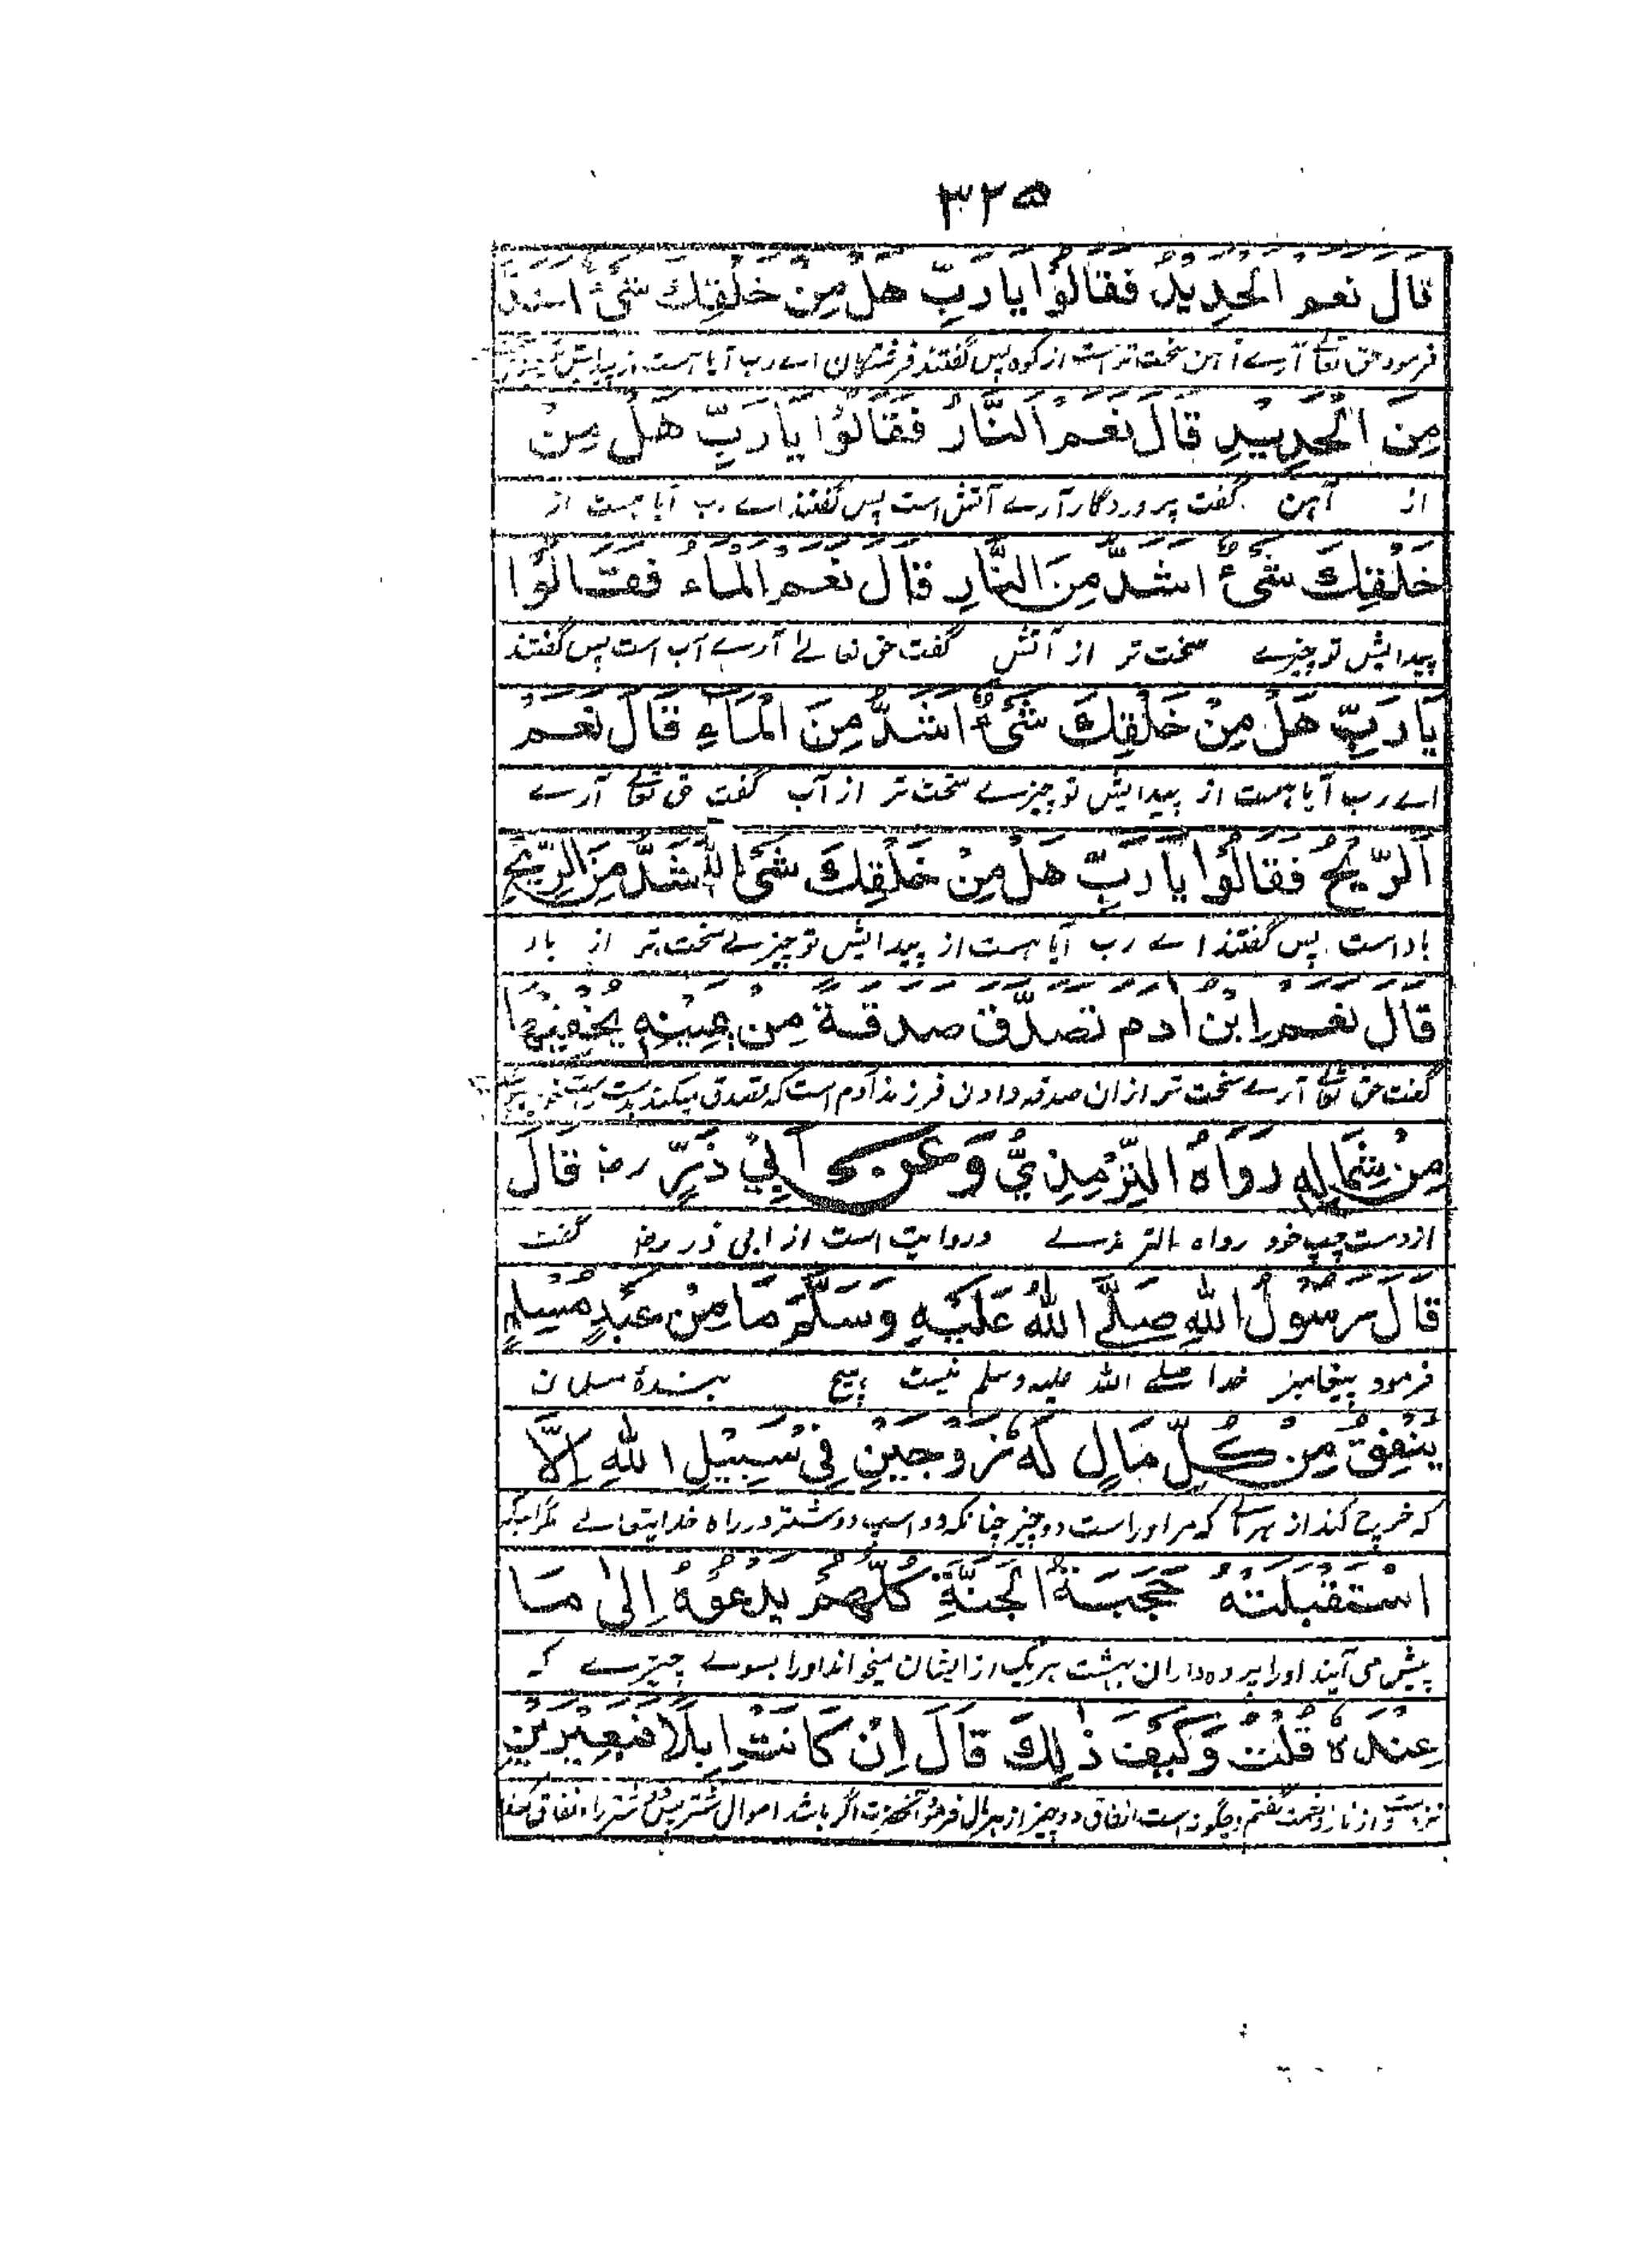 ۳۲۵
قَالَ نَعَمِ الْحَدِيْدُ فَقَالُوْا يَا رَبِّ هَلْ مِنْ خَلْقِكَ شَىْءٌ اَشَدُّ
فرمود حق تعالے آرے آہن سخت تر است از کوہ پس گفتند فرشتگان اے رب آیا ہست از پیدایش تو
مِنَ الْحَدِيْدِ قَالَ نَعَمْ اَلنَّارُ فَقَالُوْا يَا رَبِّ هَلْ مِنْ
از آہن گفت پروردگار آرے آتش است پس گفتند اے رب آیا ہست از
خَلْقِكَ شَىْءٌ اَشَدُّ مِنَ النَّارِ قَالَ نَعَمْ اَلْمَاءُ فَقَالُوْا
پیدایش تو چیزے سخت تر از آتش گفت حق تعالےٰ آرے آب است پس گفتند
يَا رَبِّ هَلْ مِنْ خَلْقِكَ شَىْءٌ اَشَدُّ مِنَ الْمَاءِ قَالَ نَعَمْ
اے رب آیا ہست از پیدایش تو چیزے سخت تر از آب گفت حق تعالے آرے
اَلرِّيْحُ فَقَالُوْا يَا رَبِّ هَلْ مِنْ خَلْقِكَ شَىْءٌ اَشَدُّ مِنَ الرِّيْحِ
باد است پس گفتند اے رب آیا ہست از پیدایش تو چیزے سخت تر از باد
قَالَ نَعَمْ اِبْنُ اٰدَمَ تَصَدَّقَ صَدَقَةً مِنْ يَمِيْنِهٖ يُخْفِيْهَا
گفت حق تعالے آرے سخت تر ازان صدقہ دادن فرزند آدم است کہ تصدق میکند بدست راست خود
مِنْ شِمَالِهٖ رَوَاهُ التِّرْمِذِيُّ وَعَنْ اَبِيْ ذَرٍّ رض قَالَ
از دست چپ خود رواہ الترمذے و روایت است از ابی ذر رض گفت
قَالَ رَسُوْلُ اللّٰهِ صَلَّى اللّٰهُ عَلَيْهِ وَسَلَّمَ مَا مِنْ عَبْدٍ مُسْلِمٍ
فرمود پیغامبر خدا صلے اللہ علیہ وسلم نیست ہیچ بندۂ مسلمان
يُنْفِقُ مِنْ كُلِّ مَالٍ لَهٗ زَوْجَيْنِ فِيْ سَبِيْلِ اللّٰهِ اِلَّا
کہ خرچ کند از ہر مالے کہ مر او راست دو چیز چنانکہ دو اسپ دو شتر در راہ خدایتعالے مگر اینکہ
اسْتَقْبَلَتْهُ حَجَبَةُ الْجَنَّةِ كُلُّهُمْ يَدْعُوْهُ اِلٰى مَا
پیش می آیند او را پردہ داران بہشت ہر یک از ایشان میخواند او را بسوے چیزے کہ
عِنْدَهٗ قُلْتُ وَكَيْفَ ذٰلِكَ قَالَ اِنْ كَانَتْ اِبِلًا فَبَعِيْرَيْنِ
نزد اوست از ناز و نعمت گفتم و چگونہ است انفاق دو چیز از ہر مال فرمود آنحضرت اگر باشد اموال شتر پس دو شتر را انفاق کند